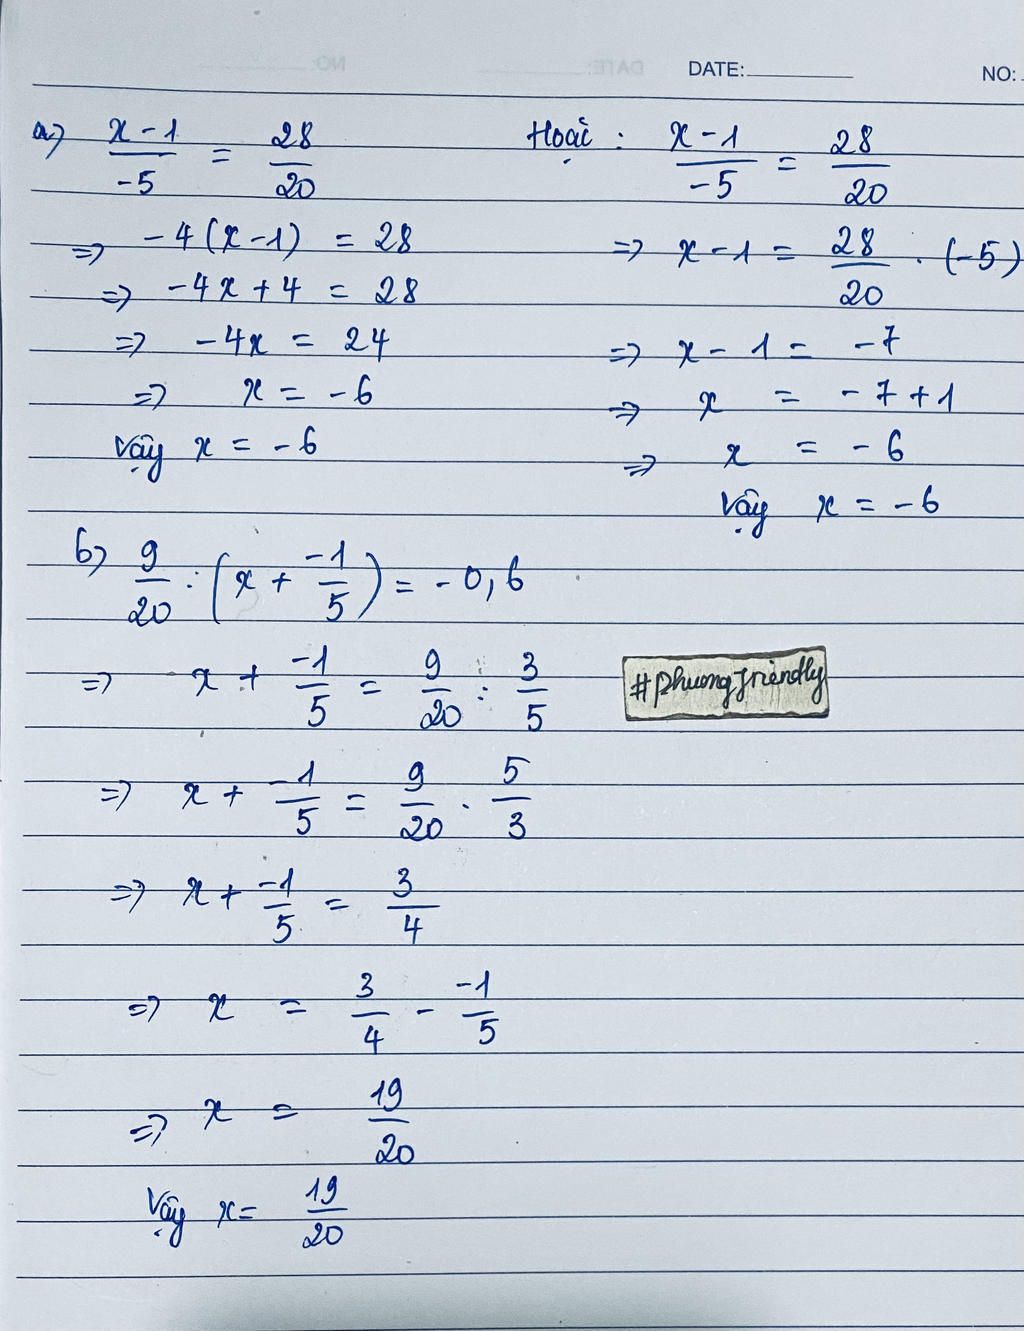 DATE:
NO:
a) x - 1 / -5 = 28 / 20
=> -4(x - 1) = 28
=> -4x + 4 = 28
=> -4x = 24
=> x = -6
Vậy x = -6
Hoặc : x - 1 / -5 = 28 / 20
=> x - 1 = 28 / 20 . (-5)
=> x - 1 = -7
=> x = -7 + 1
=> x = -6
Vậy x = -6
b) 9 / 20 : (x + -1 / 5) = -0,6
=> x + -1 / 5 = 9 / 20 : 3 / 5
#phuongfriendly
=> x + -1 / 5 = 9 / 20 . 5 / 3
=> x + -1 / 5 = 3 / 4
=> x = 3 / 4 - -1 / 5
=> x = 19 / 20
Vậy x = 19 / 20